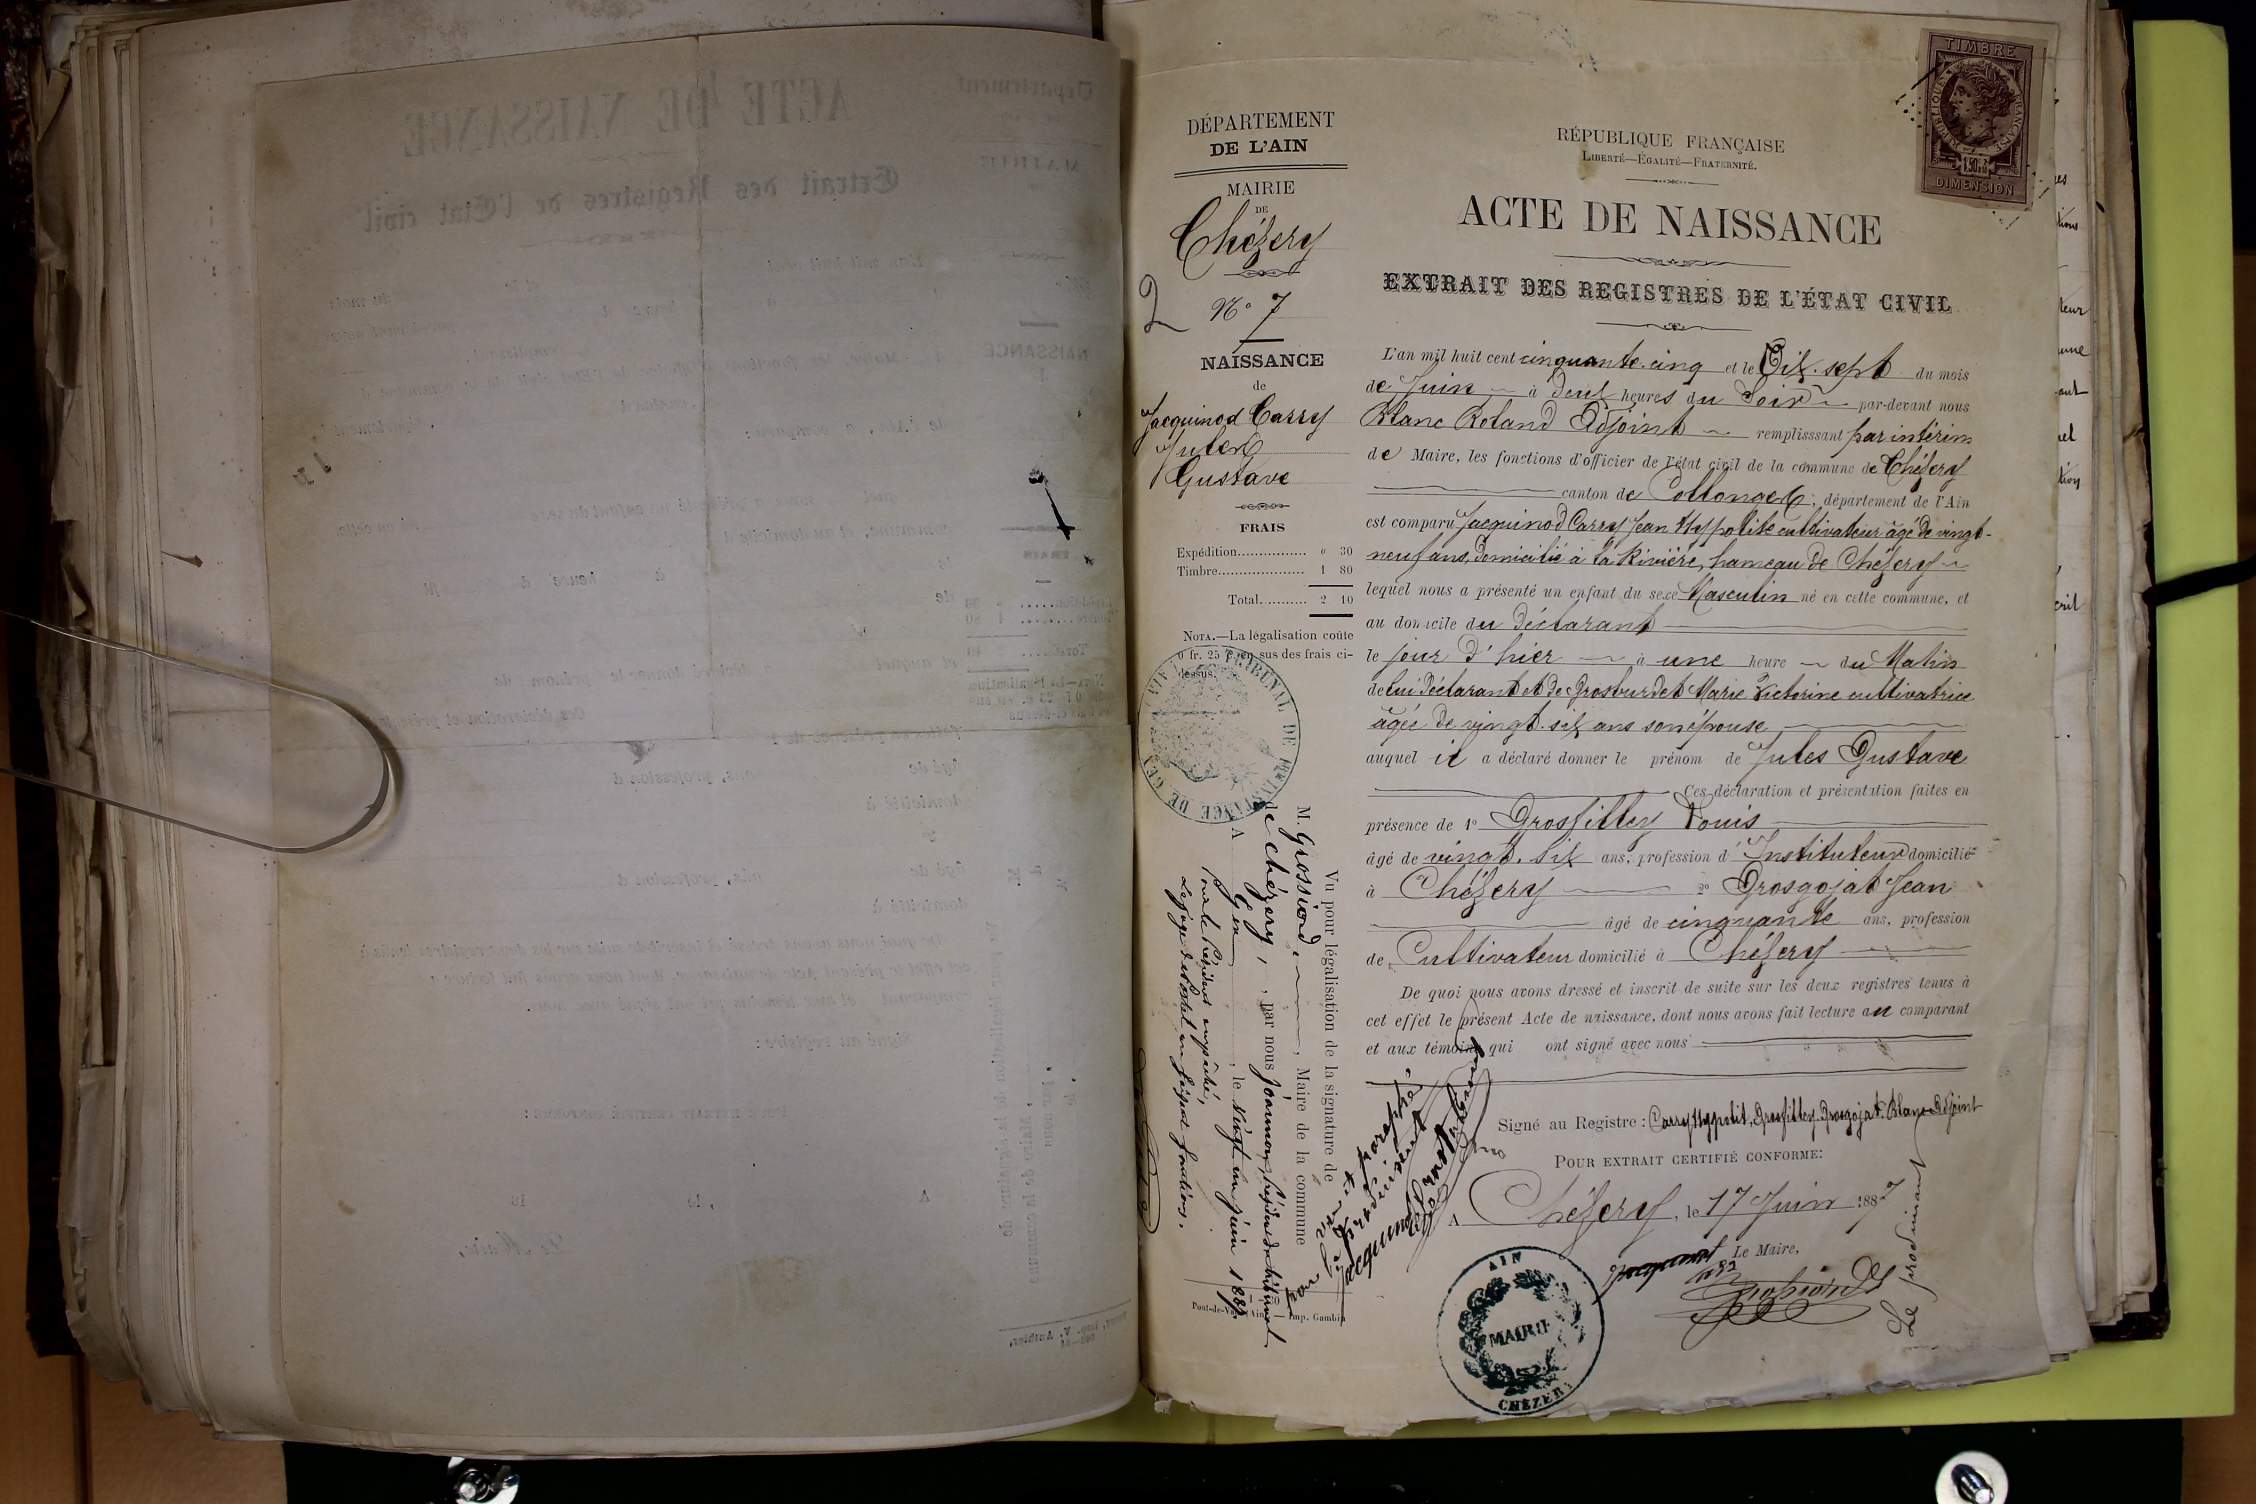 DÉPARTEMENT
DE L'AIN
MAIRIE
DE
Chézery
2
N° 7
NAISSANCE
de
Jacquinod Carry
Jules
Gustave
FRAIS
Expédition................ " 30
Timbre.................... 1 80
Total.......... 2 10
NOTA.—La légalisation coûte
0 fr. 25 c. en sus des frais ci-
dessus.
TRIBUNAL DE 1RE INSTANCE DE GEX
RÉPUBLIQUE FRANÇAISE
LIBERTÉ—ÉGALITÉ—FRATERNITÉ.
TIMBRE
RÉPUBLIQUE FRANÇAISE
DIMENSION
ACTE DE NAISSANCE
EXTRAIT DES REGISTRES DE L'ÉTAT CIVIL
L'an mil huit cent cinquante-cinq et le Dix-sept du mois
de Juin à Deux heures du Soir par-devant nous
Blanc Roland Adjoint remplisssant par intérim
de Maire, les fonctions d'officier de l'état civil de la commune de Chézery
canton de Collonges, département de l'Ain
est comparu Jacquinod Carry Jean Hyppolite cultivateur âgé de vingt-
neuf ans, Domicilié à la Rivière, hameau de Chézery
lequel nous a présenté un enfant du sexe Masculin né en cette commune, et
au domicile du Déclarant
le jour d'hier à une heure du Matin
de lui Déclarant et de Grosburdet Marie Victorine cultivatrice
âgée de vingt-six ans son épouse
auquel il a déclaré donner le prénom de Jules Gustave
Ces déclaration et présentation faites en
présence de 1° Grosfilley Louis
âgé de vingt-six ans, profession d'Instituteur domicilié
à Chézery 2° Grosgojat Jean
âgé de cinquante ans, profession
de Cultivateur domicilié à Chézery
De quoi nous avons dressé et inscrit de suite sur les deux registres tenus à
cet effet le présent Acte de naissance, dont nous avons fait lecture au comparant
et aux témoins qui ont signé avec nous
Signé au Registre : Carry Hyppolit, Grosfilley. Grosgojat. Blanc Adjoint
POUR EXTRAIT CERTIFIÉ CONFORME:
A Chézery, le 17 Juin 1887
Le Maire,
Grossiord
AIN
MAIRIE
CHÉZERY
Vu pour légalisation de la signature de
M. Grossiord, Maire de la commune
de Chézery, par nous Joannon, président du tribunal
A Gex, le vingt un juin 1887.
Pour le Président empêché,
Le juge
Pont-de-Vaux (Ain) — Imp. Gambin
ACTE DE NAISSANCE
Extrait des Registres de l'État civil